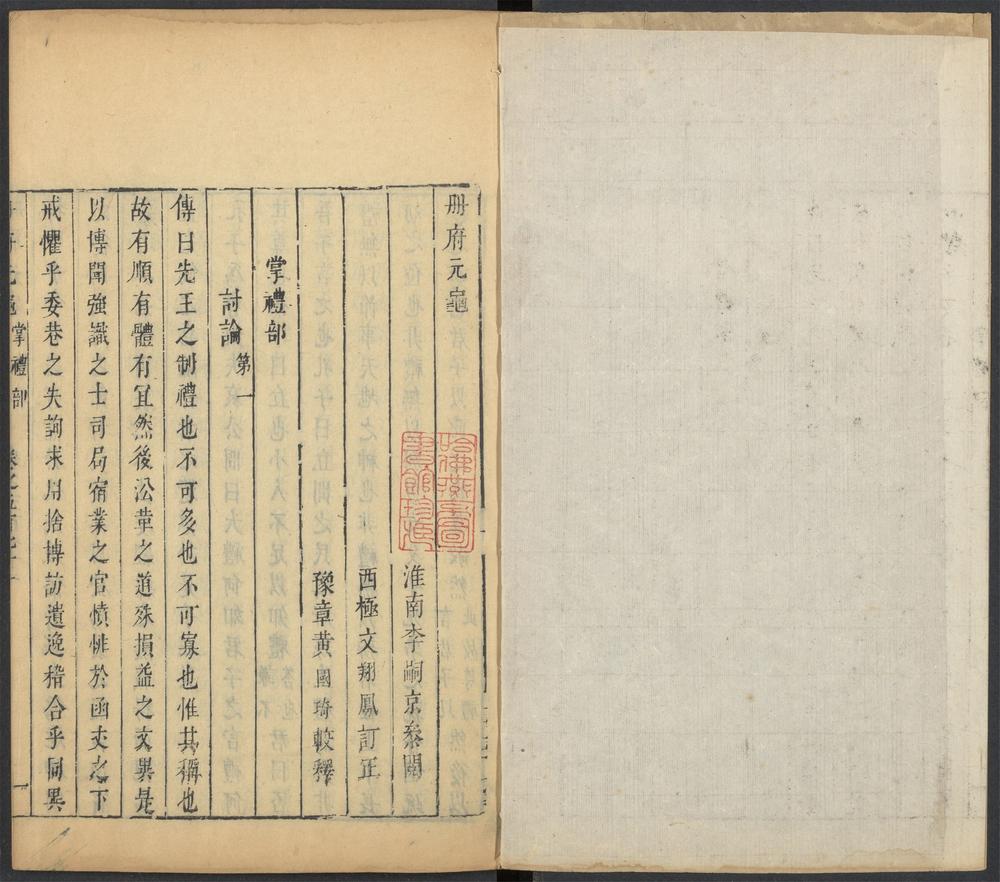 册府元龜
淮南李嗣京叅閱
西極文翔鳳訂正
豫章黃國琦較釋
掌禮部
討論第一
傳曰先王之制禮也不可多也不可寡也惟其稱也
故有順有體有宜然後㳂革之道殊損益之文異是
以博聞強識之士司局宿業之官憤悱於函丈之下
戒懼乎委巷之失詢求用捨博訪遺逸稽合乎同異
掌禮部
一
哈佛燕京圖書館珍藏